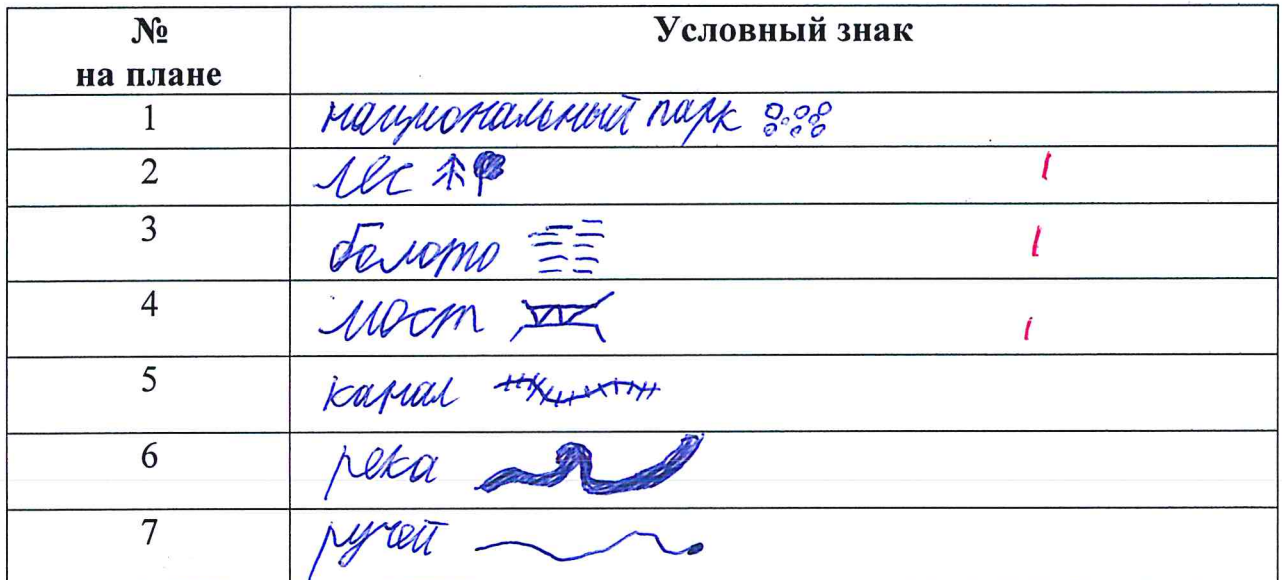 №
на плане
Условный знак
1 национальный парк
2 лес 1
3 болото 1
4 мост 1
5 канал
6 река
7 ручей